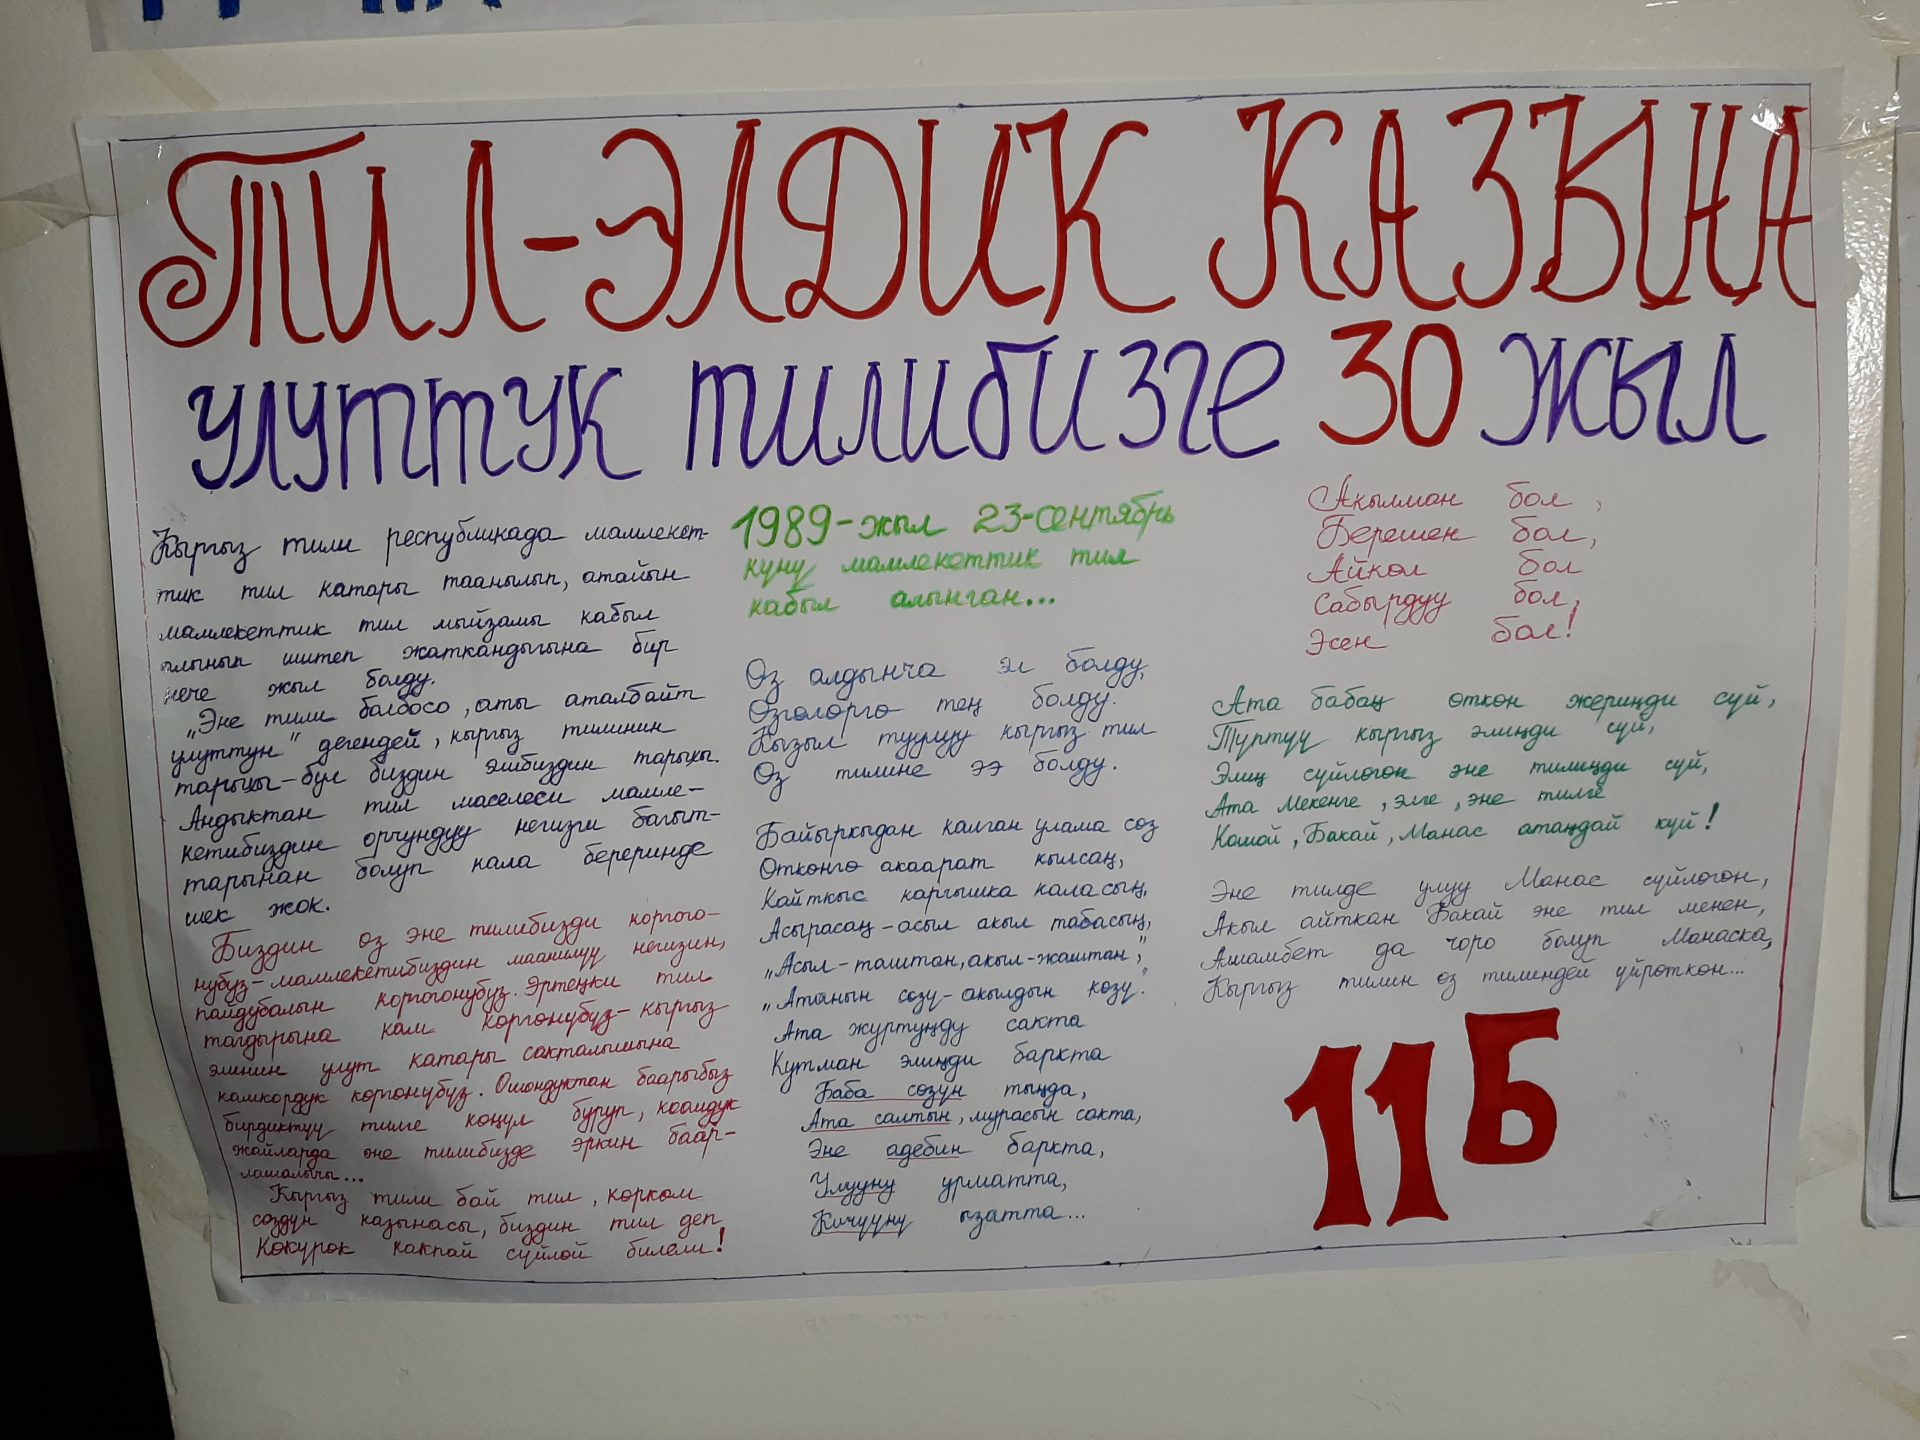 ТИЛ-ЭЛДИК КАЗЫНА
УЛУТТУК ТИЛИБИЗГЕ 30 ЖЫЛ
Кыргыз тили республикада мамлекет-
тик тил катары таанылып, атайын
мамлекеттик тил мыйзамы кабыл
алынып иштеп жаткандыгына бир
нече жыл болду.
„Эне тили болбосо, аты аталбайт
улуттун" дегендей, кыргыз тилинин
тарыхы-бул биздин элибиздин тарыхы.
Андыктан тил маселеси мамле-
кетибиздин орчундуу негизги багыт-
тарынан болуп кала береринде
шек жок.
Биздин оз эне тилибизди коргого-
нубуз-мамлекетибиздин маанилуу негизин,
пайдубалын коргогонубуз. Эртеңки тил
тагдырына кам коргонубуз-кыргыз
элинин улут катары сакталышына
камкордук коргонубуз. Ошондуктан баарыбыз
бирдиктуу тилге коңул буруп, коомдук
жайларда эне тилибизде эркин баар-
лашалычы...
Кыргыз тили бай тил, корком
создун казынасы, биздин тил деп
Кокурок какпай суйлой билели!
1989-жыл 23-сентябрь
куну мамлекеттик тил
кабыл алынган...
Оз алдынча эл болду,
Озголорго тең болду.
Кызыл туулуу кыргыз тил
Оз тилине ээ болду.
Байыркыдан калган улама соз
Отконго акаарат кылсаң,
Кайткыс каргышка каласың,
Асырасаң-асыл акыл табасың,
„Асыл-таштан, акыл-жаштан",
„Атанын созу-акылдын козу".
Ата журтуңду сакта
Кутман элиңди баркта
Баба созун тыңда,
Ата салтын, мурасын сакта,
Эне адебин баркта,
Улууну урматта,
Кичууну ызатта...
Акылман бол,
Берешен бол,
Айкол бол
Сабырдуу бол,
Эсен бол!
Ата бабаң откон жериңди суй,
Туптуу кыргыз элиңди суй,
Элиң суйлогон эне тилиңди суй,
Ата Мекенге, элге, эне тилге
Кошой, Бакай, Манас атаңдай куй!
Эне тилде улуу Манас суйлогон,
Акыл айткан Бакай эне тил менен,
Алмамбет да чоро болуп Манаска,
Кыргыз тилин оз тилиндей уйроткон...
11Б